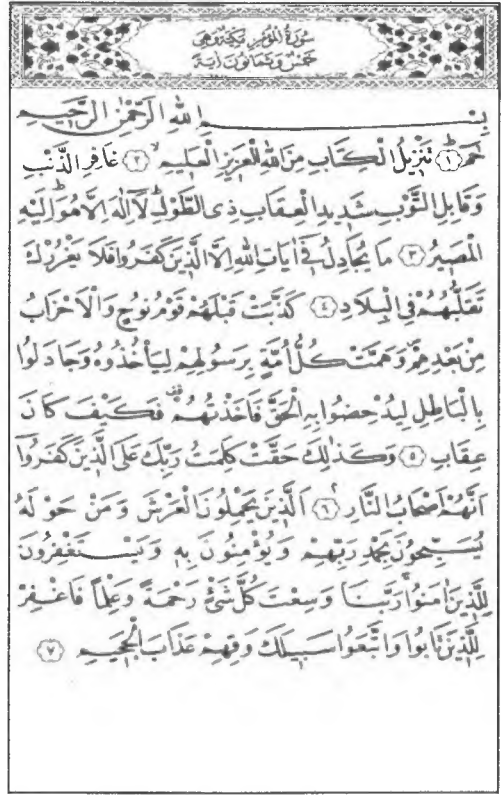 سُورَةُ الْمُؤْمِنِ مَكِّيَّةٌ وَهِيَ
خَمْسٌ وَثَمَانُونَ اٰيَةً
بِسْــــــمِ اللّٰهِ الرَّحْمٰنِ الرَّحِيمِ
حٰمٓ ﴿١﴾ تَنْزِيلُ الْكِتَابِ مِنَ اللّٰهِ الْعَزِيزِ الْعَلِيمِ ﴿٢﴾ غَافِرِ الذَّنْبِ
وَقَابِلِ التَّوْبِ شَدِيدِ الْعِقَابِ ذِى الطَّوْلِ لَٓا اِلٰهَ اِلَّا هُوَ اِلَيْهِ
الْمَصِيرُ ﴿٣﴾ مَا يُجَادِلُ فِٓى اٰيَاتِ اللّٰهِ اِلَّا الَّذِينَ كَفَرُوا فَلَا يَغْرُرْكَ
تَقَلُّبُهُمْ فِى الْبِلَادِ ﴿٤﴾ كَذَّبَتْ قَبْلَهُمْ قَوْمُ نُوحٍ وَالْاَحْزَابُ
مِنْ بَعْدِهِمْ وَهَمَّتْ كُلُّ اُمَّةٍ بِرَسُولِهِمْ لِيَاْخُذُوهُ وَجَادَلُوا
بِالْبَاطِلِ لِيُدْحِضُوا بِهِ الْحَقَّ فَاَخَذْتُهُمْ فَكَيْفَ كَانَ
عِقَابِ ﴿٥﴾ وَكَذٰلِكَ حَقَّتْ كَلِمَتُ رَبِّكَ عَلَى الَّذِينَ كَفَرُٓوا
اَنَّهُمْ اَصْحَابُ النَّارِ ﴿٦﴾ اَلَّذِينَ يَحْمِلُونَ الْعَرْشَ وَمَنْ حَوْلَهُ
يُسَبِّحُونَ بِحَمْدِ رَبِّهِمْ وَيُؤْمِنُونَ بِهِ وَيَسْتَغْفِرُونَ
لِلَّذِينَ اٰمَنُوا رَبَّنَا وَسِعْتَ كُلَّ شَىْءٍ رَحْمَةً وَعِلْمًا فَاغْفِرْ
لِلَّذِينَ تَابُوا وَاتَّبَعُوا سَبِيلَكَ وَقِهِمْ عَذَابَ الْجَحِيمِ ﴿٧﴾